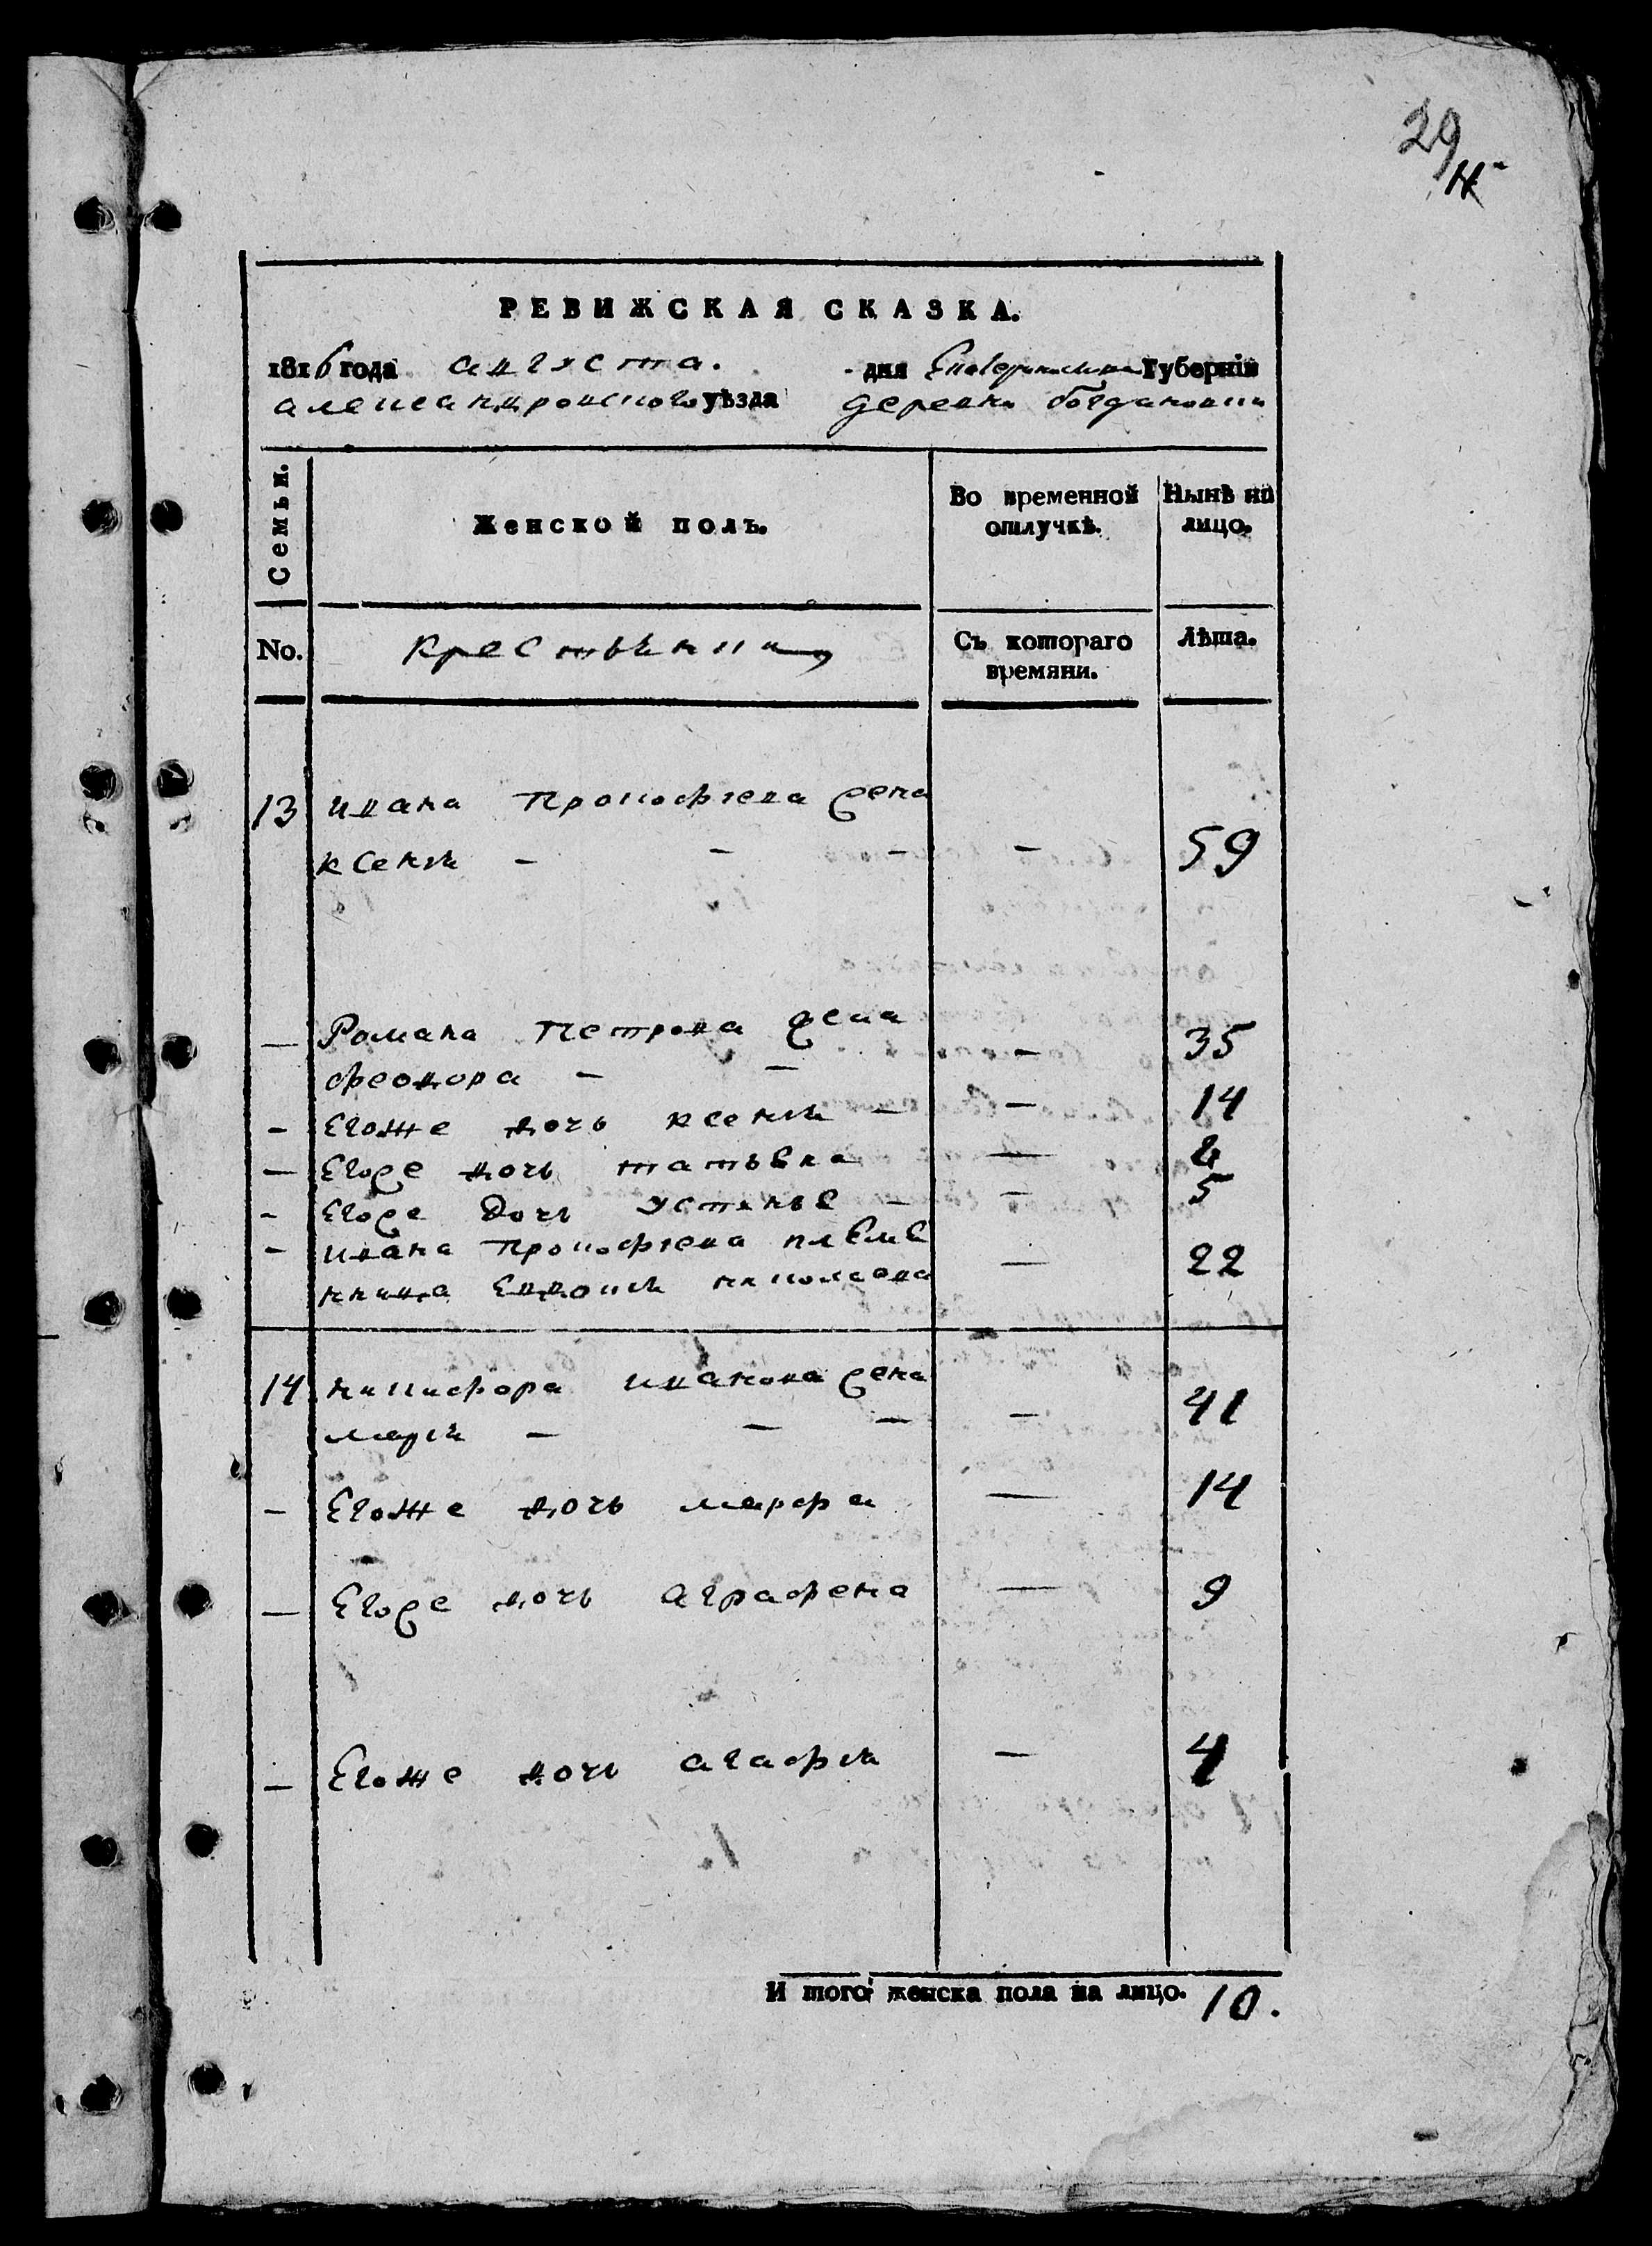 29
РЕВИЖСКАЯ СКАЗКА.
1816 года августа. дня Екатеринославской Губерніи
александровского уѣзда деревни богдановки
Семьи. Женской полъ. Во временной отлучкѣ. Нынѣ на лицо.
No. крестьянки Съ котораго времяни. Лѣта.
13 ивана прокофьева жена
ксенія - - - - 59
— Романа петрова жена — 35
феодора - —
- Егоже дочь ксенія — — 14
— Егоже дочь татьяна —
- Егоже дочь устинья — — 5
- ивана прокофьева племя
нница Евдокия николаева — 22
14 никифора иванова жена
марія — — — — 41
— Егоже дочь марфа — 14
— Егоже дочь аграфена — 9
— Егоже дочь агафія — 4
И того женска пола на лицо. 10.